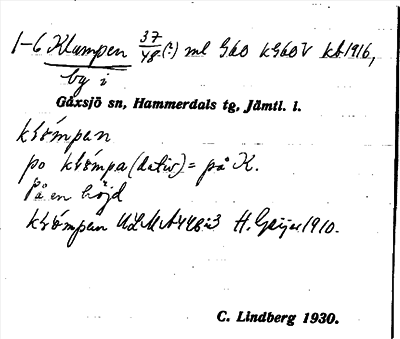 1-6 Klumpen 37/48 (?) ml Gåo kGåoV kb1916,
by i
Gåxsjö sn, Hammerdals tg, Jämtl. l.
klómpan
po klómpa (dativ) = på K.
på en höjd
klómpan ULMA 448:3 H. Geijer 1910.
C. Lindberg 1930.